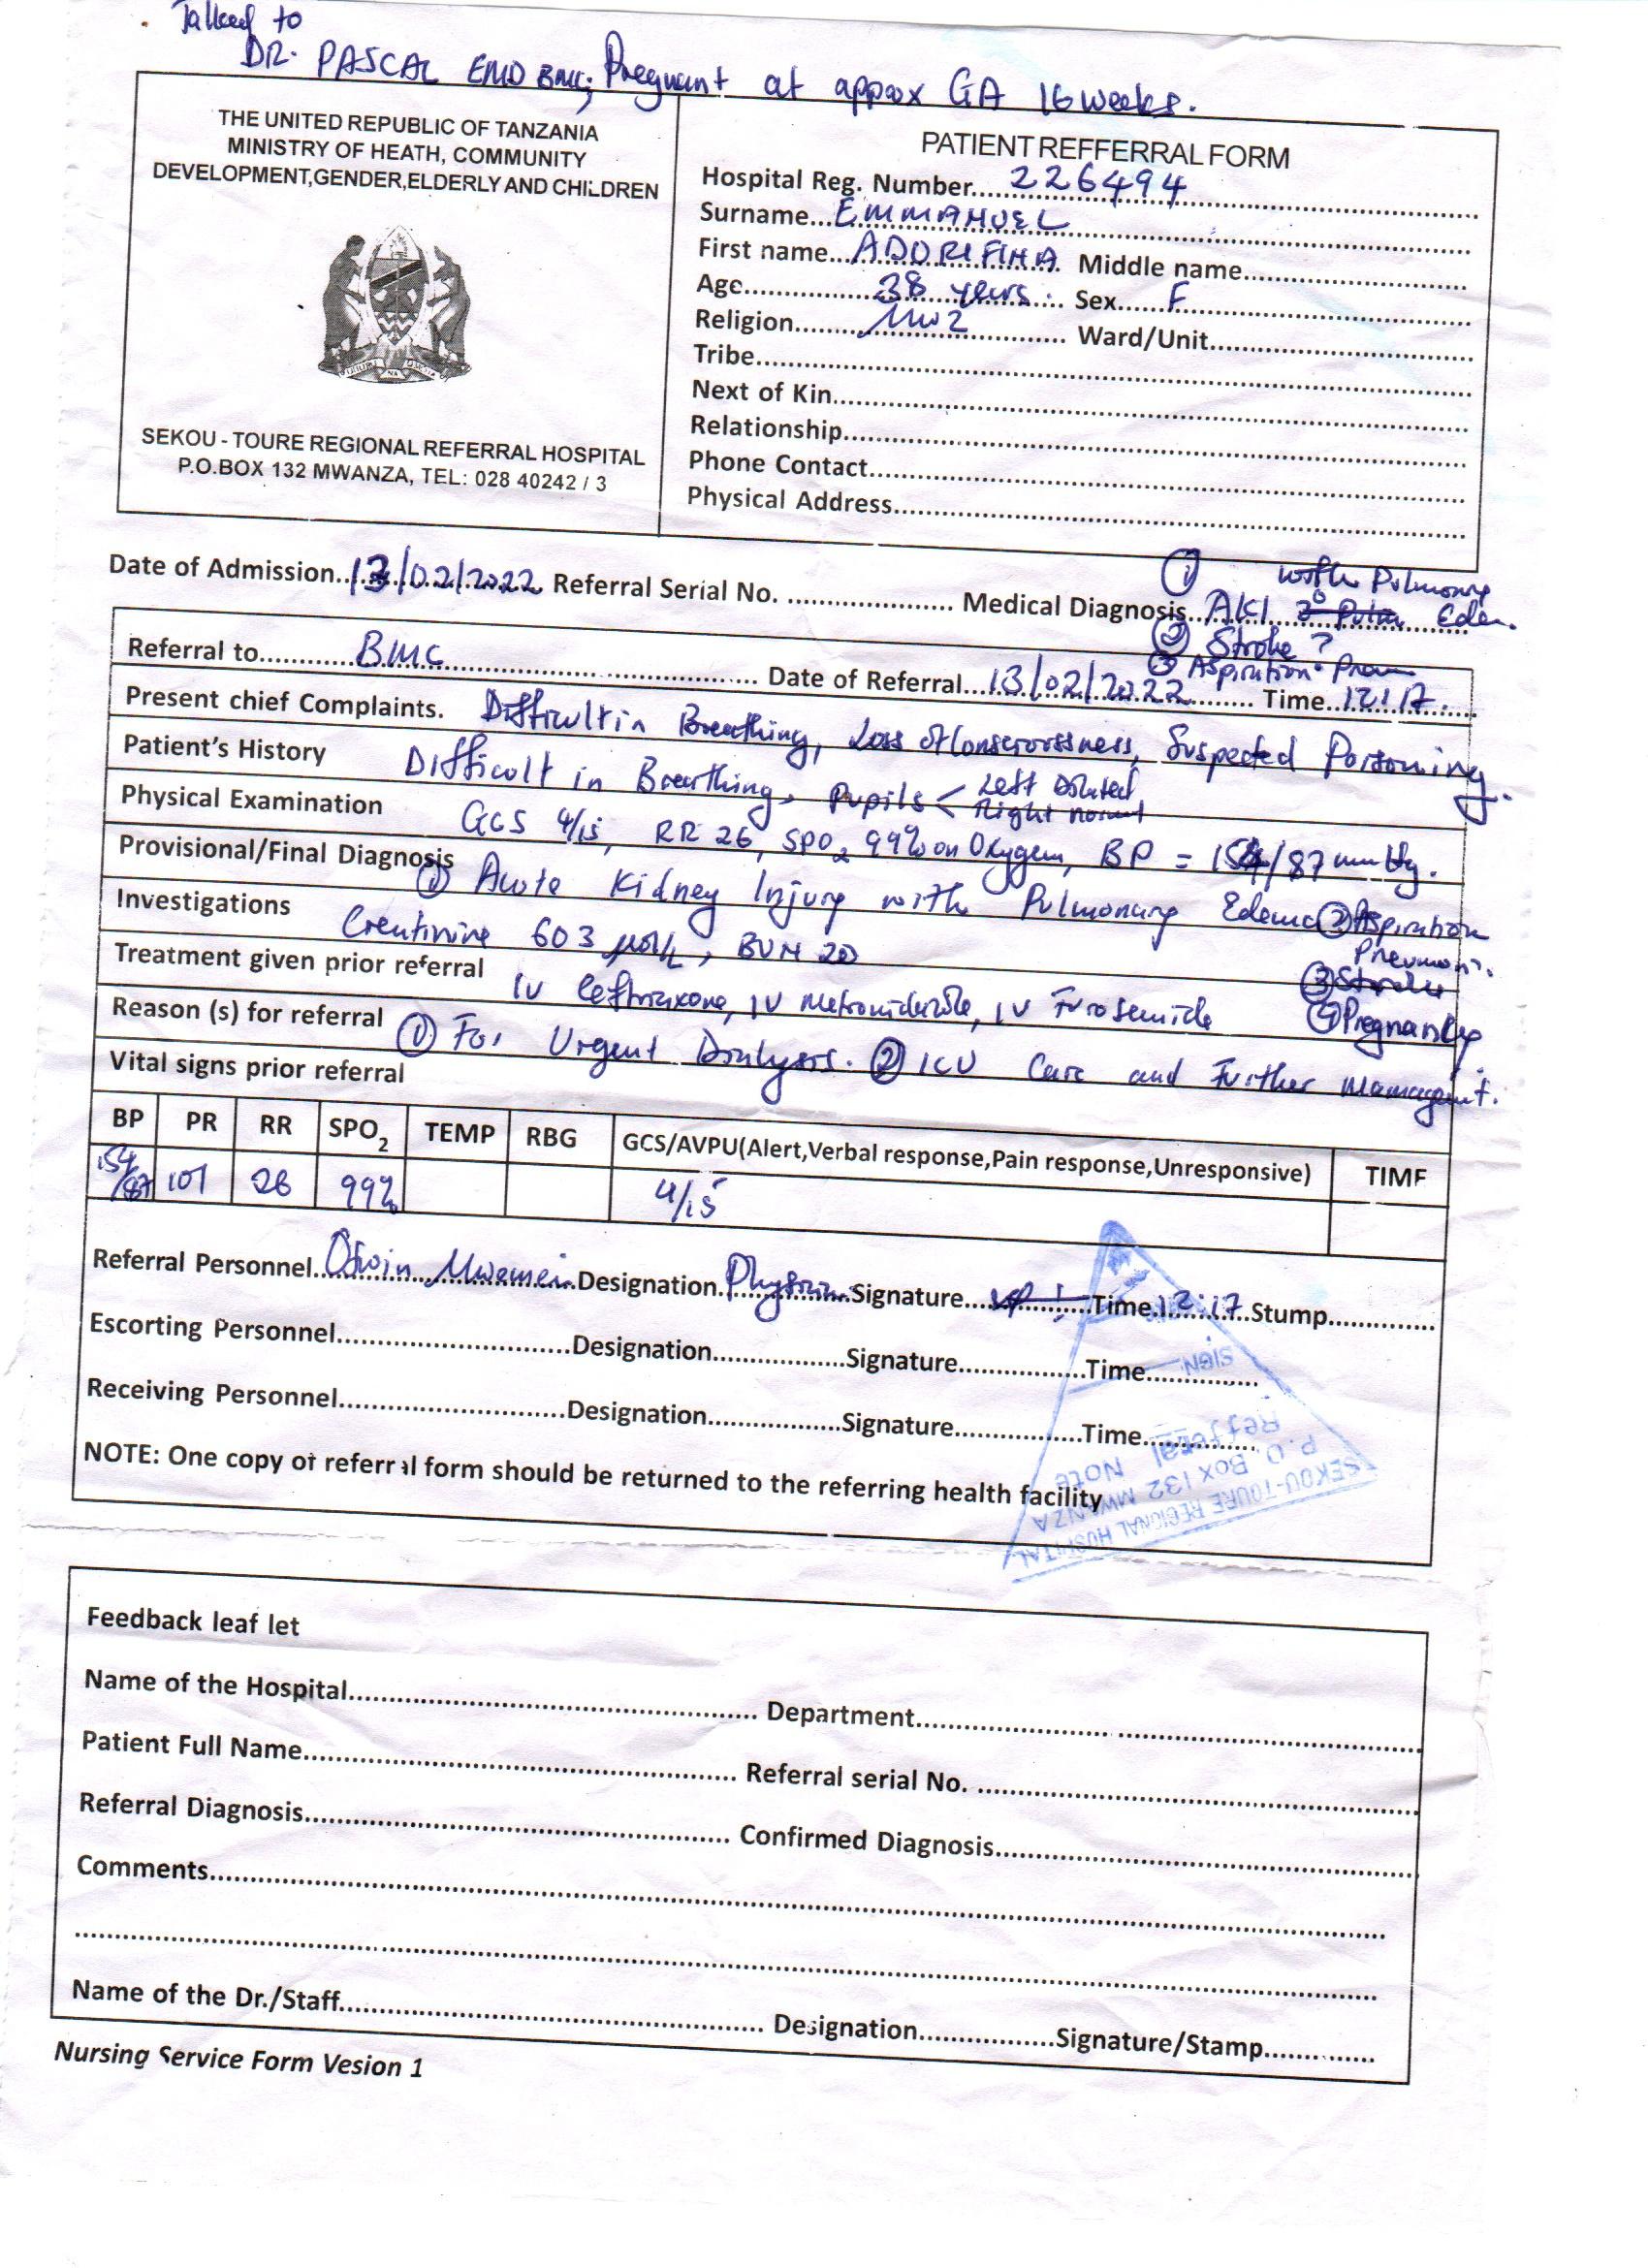 Talked to
DR. PASCAL EMD BMC; Pregnant at approx GA 16 weeks.
THE UNITED REPUBLIC OF TANZANIA
MINISTRY OF HEATH, COMMUNITY
DEVELOPMENT,GENDER,ELDERLY AND CHILDREN
SEKOU - TOURE REGIONAL REFERRAL HOSPITAL
P.O.BOX 132 MWANZA, TEL: 028 40242 / 3
PATIENT REFFERRAL FORM
Hospital Reg. Number.....226494
Surname...EMMANUEL
First name...ADORIFINA Middle name
Age 38 years. Sex F
Religion Ward/Unit
Tribe
Next of Kin
Relationship
Phone Contact
Physical Address
Date of Admission 13/02/2022 Referral Serial No. Medical Diagnosis ① AKI 2° with Pulmonary Edem.
② Stroke ?
③ Aspiration Pneu
Referral to BMC Date of Referral 13/02/2022 Time 12:17
Present chief Complaints. Difficult in Breathing, Loss of Consciorssness, Suspected Poisoning.
Patient's History Difficult in Breathing, Pupils < Left Dilated
Right normal
Physical Examination GCS 4/15, RR 26, SPO2 99% on Oxygen, BP = 154/87 mmHg.
Provisional/Final Diagnosis ① Acute Kidney Injury with Pulmonary Edema ② Aspiration
Pneumoni.
③ Stroke
④ Pregnancy
Investigations Creatinine 603 µmol/L, BUN 20
Treatment given prior referral IV Ceftriaxone, IV Metronidazole, IV Furosemide
Reason (s) for referral ① For Urgent Dialysis. ② ICU Care and Further Management.
Vital signs prior referral
BP PR RR SPO2 TEMP RBG GCS/AVPU(Alert,Verbal response,Pain response,Unresponsive) TIMF
154/87 101 26 99% 4/15
Referral Personnel Designation Physician Signature Time 12:17 Stump
Escorting Personnel Designation Signature Time
Receiving Personnel Designation Signature Time
NOTE: One copy of referral form should be returned to the referring health facility
SEKOU-TOURE REGIONAL HOSPITAL
P.O. BOX 132 MWANZA
Refferal Note
SIGN
Feedback leaf let
Name of the Hospital Department
Patient Full Name Referral serial No.
Referral Diagnosis Confirmed Diagnosis
Comments
Name of the Dr./Staff Designation Signature/Stamp
Nursing Service Form Vesion 1